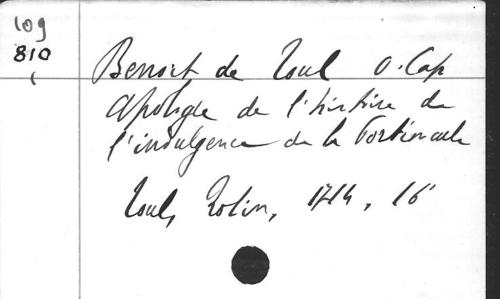 109
810
Benoit de Toul O. Cap
Apologie de l'histoire de
l'indulgence de la Portioncule
Toul, Rolin, 1714, 16°